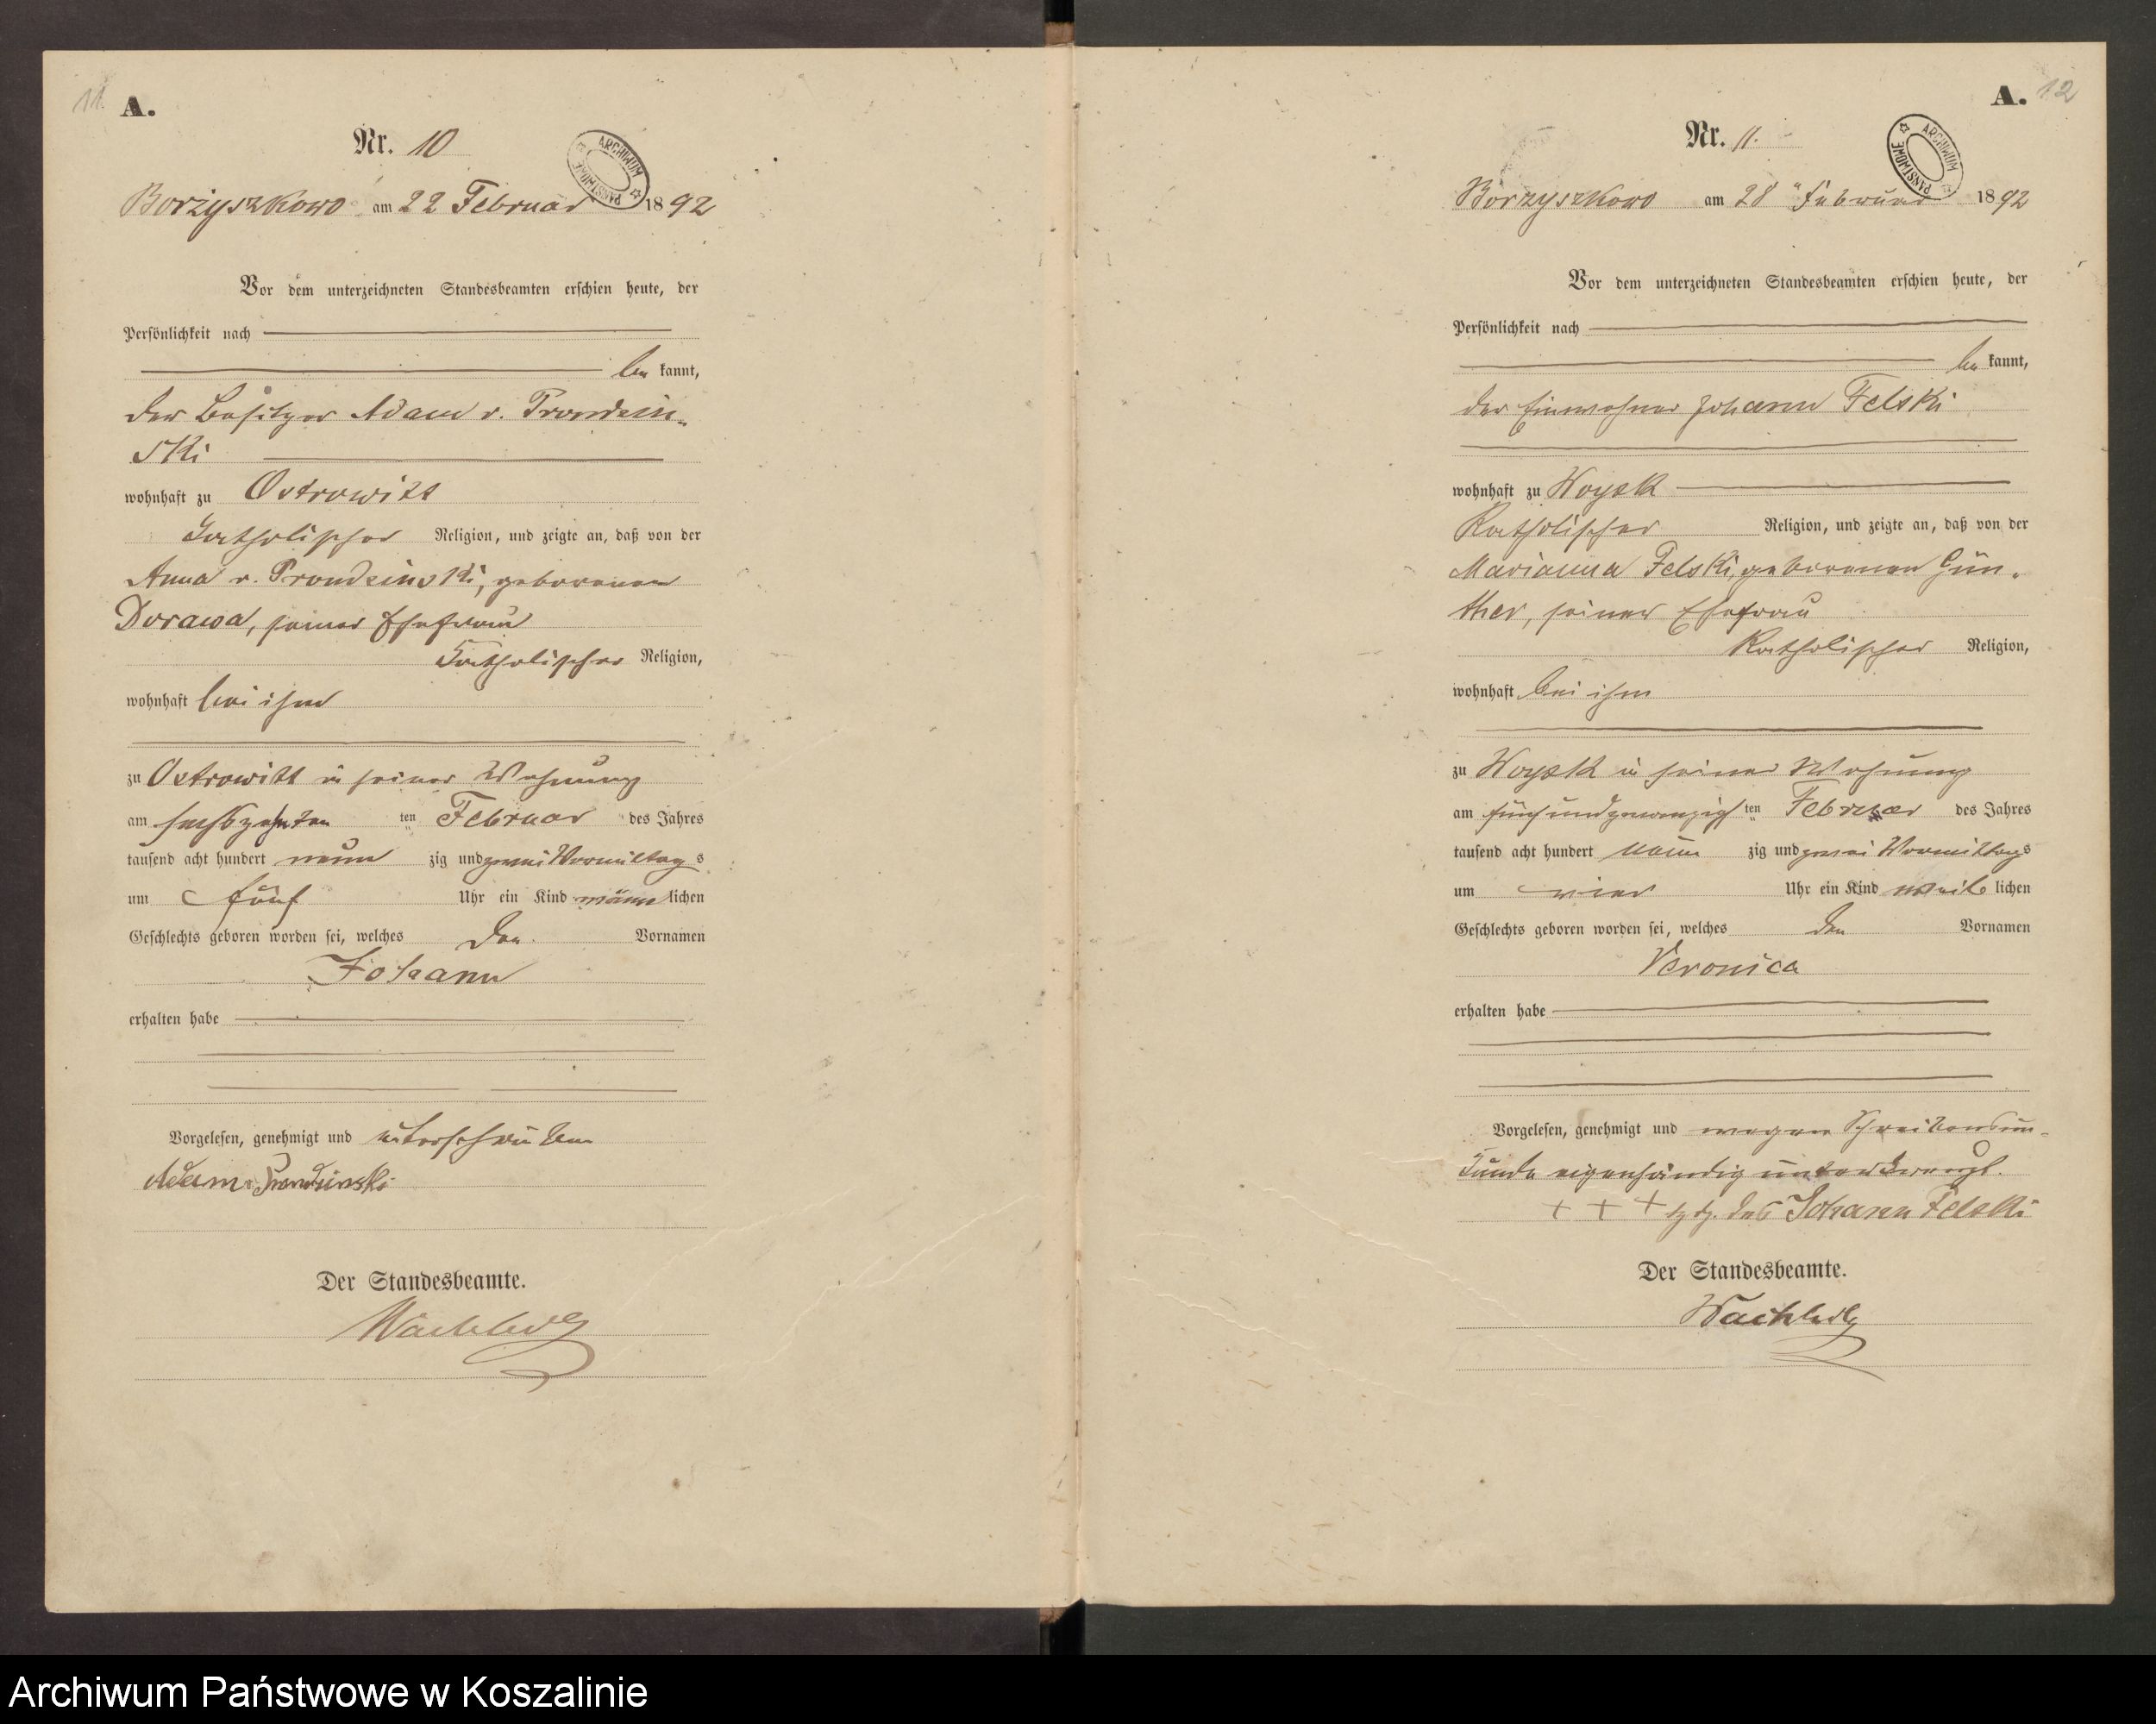 11. A.
Nr. 10
ARCHIWUM PAŃSTWOWE
Borzyszkowo am 22 Februar 1892
Vor dem unterzeichneten Standesbeamten erschien heute, der
Persönlichkeit nach
be kannt,
der Besitzer Adam v. Prondzin-
ski
wohnhaft zu Ostrowitt
katholischer Religion, und zeigte an, daß von der
Anna v. Prondzinski, geborenen
Dorawa, seiner Ehefrau
katholischer Religion,
wohnhaft bei ihm
zu Ostrowitt in seiner Wohnung
am sechszehnten ten Februar des Jahres
tausend acht hundert neun zig und zwei Vormittag s
um fünf Uhr ein Kind männ lichen
Geschlechts geboren worden sei, welches den Vornamen
Johann
erhalten habe
Vorgelesen, genehmigt und unterschrieben
Adam Prondzinski
Der Standesbeamte.
A. 12
Nr. 11.
ARCHIWUM PAŃSTWOWE
Borzyszkowo am 28 Februar 1892
Vor dem unterzeichneten Standesbeamten erschien heute, der
Persönlichkeit nach
be kannt,
der Einwohner Johann Felski
wohnhaft zu Woysk
katholischer Religion, und zeigte an, daß von der
Marianna Felski, geborenen Gün-
ther, seiner Ehefrau
katholischer Religion,
wohnhaft bei ihm
zu Woysk in seiner Wohnung
am fünfundzwanzigsten ten Februar des Jahres
tausend acht hundert neun zig und zwei Vormittags
um vier Uhr ein Kind weib lichen
Geschlechts geboren worden sei, welches den Vornamen
Veronica
erhalten habe
Vorgelesen, genehmigt und wegen Schreibensun-
kunde eigenhändig unterkreuzt.
+ + + hdz. des Johann Felski
Der Standesbeamte.
Archiwum Państwowe w Koszalinie